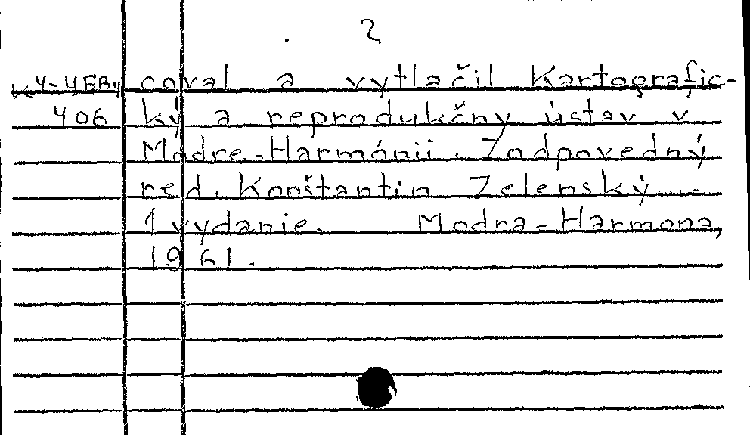 2
coval a vytlačil Kartografic-
406 ký a reprodukčny ústav v
Modre-Harmónii. Zodpovedný
red. Konštantin Zelenský.-
1 vydanie. Modra-Harmona,
1961.